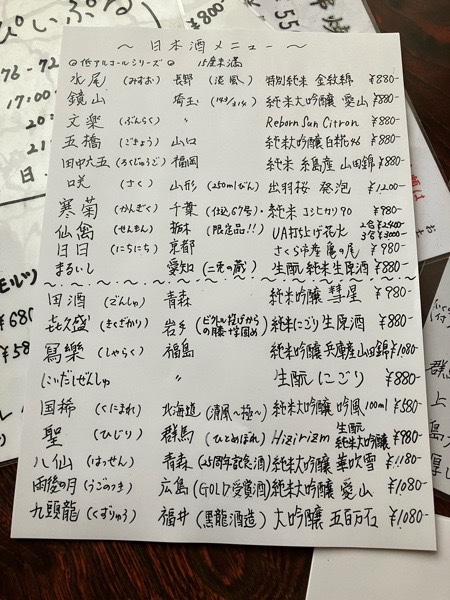 ぴいぷる)
¥800-
串焼
¥55
76-72
17:00
20:
21:
日.
モルツ
¥680
¥58
群馬
上
島
厚し
～日本酒メニュー～
◎低アルコールシリーズ◎ 15度未満
水尾 (みずお) 長野 (淡風) 特別純米 金紋錦 ¥880-
鏡山 埼玉 純米大吟醸 愛山 ¥880-
文楽 (ぶんらく) 〃 Reborn Sun Citron ¥880-
五橋 (ごきょう) 山口 純米大吟醸 白糀46 ¥880-
田中六五 (ろくじゅうご) 福岡 純米 糸島産 山田錦 ¥880-
咲 (さく) 山形 (250mlびん) 出羽桜 発泡 ¥1,200-
寒菊 (かんぎく) 千葉 (仕込67号)・純米 コシヒカリ90 ¥980-
仙禽 (せんきん) 栃木 (限定品!!) UA打ち上げ花火 2合¥2400- 3合¥3000-
日日 (にちにち) 京都 さくら市産 亀の尾 ¥980-
まるいし 愛知 (二兎の蔵) 生酛 純米生原酒 ¥880-
田酒 (でんしゅ) 青森 純米吟醸 彗星 ¥980-
㐂久盛 (きくざかり) 岩手 (ビートル投げからの藤控固め) 純米にごり生原酒 ¥880-
冩樂 (しゃらく) 福島 純米吟醸 兵庫産山田錦 ¥1080-
にいだしぜんしゅ 〃 生酛 にごり ¥880-
国稀 (くにまれ) 北海道 (清風～極～) 純米大吟醸 吟風 100ml ¥580-
聖 (ひじり) 群馬 (ひとめぼれ) Hizirizm 生酛 純米大吟醸 ¥980-
八仙 (はっせん) 青森 (25周年記念酒) 純米大吟醸 華吹雪 ¥1180-
雨後の月 (うごのつき) 広島 (GOLD受賞酒) 純米大吟醸 愛山 ¥1080-
九頭龍 (くずりゅう) 福井 (黒龍酒造) 大吟醸 五百万石 ¥1080-